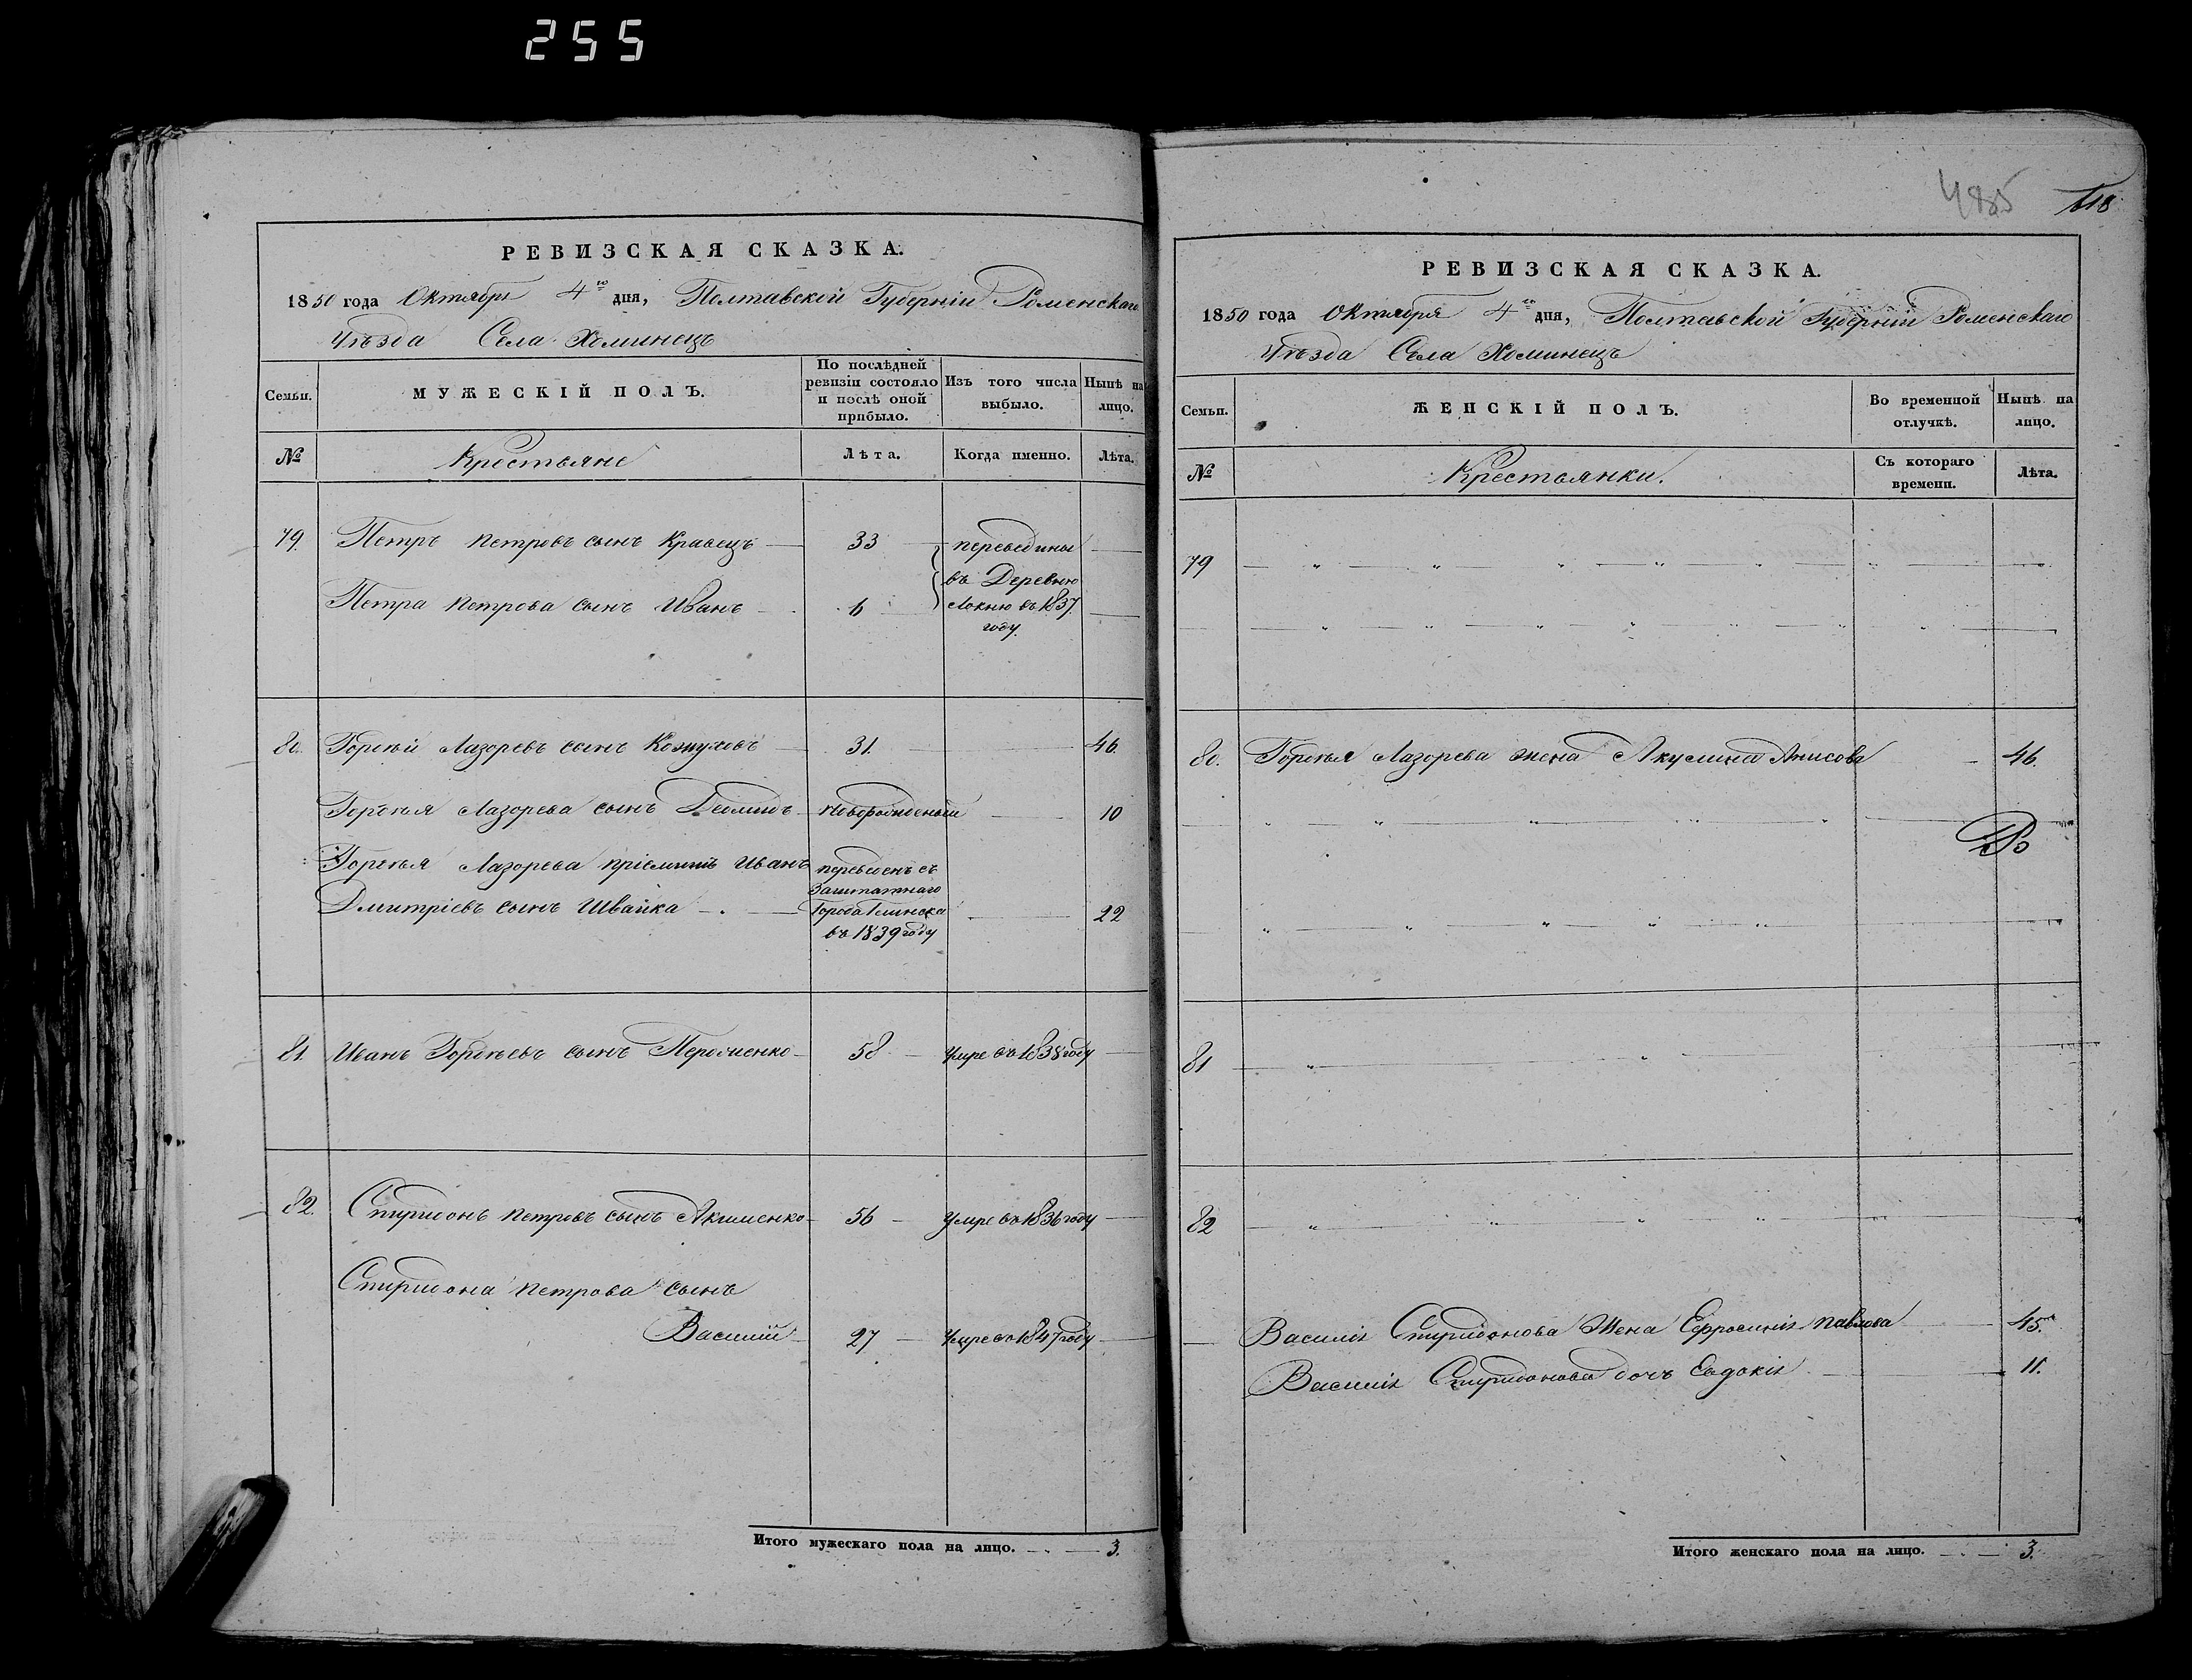 255
РЕВИЗСКАЯ СКАЗКА.
1850 года Октября 4го дня, Полтавской Губерніи Роменскаго
Уѣзда Села Хоминецъ
Семьи.
МУЖЕСКІЙ ПОЛЪ.
По послѣдней
ревизіи состояло
и послѣ оной
прибыло.
Изъ того числа
выбыло.
Нынѣ на
лицо.
№
Крестьяне
Лѣта.
Когда именно.
Лѣта.
79. Петръ Петровъ сынъ Кравецъ 33 переведины
въ Деревню
Петра Петрова сынъ Иванъ 6 Локню въ 1837
году.
80. Гордѣй Лазоревъ сынъ Кожуховъ 31. 46.
Гордѣя Лазорева сынъ Деомидъ Новорожденый 10
Гордѣя Лазорева пріемышъ Иванъ переведенъ съ
Заштатнаго
Дмитріевъ сынъ Швайка Города Глинска 22
въ 1839 году
81. Иванъ Гордѣевъ сынъ 58 умре въ 1838 году
82. Спиридонъ Петровъ сынъ Акименко 56 умре въ 1836 году
Спиридона Петрова сынъ
Василий 27 умре въ 1847 году
Итого мужескаго пола на лицо. 3.
485
618
РЕВИЗСКАЯ СКАЗКА.
1850 года Октября 4го дня, Полтавской Губерніи Роменскаго
Уѣзда Села Хоминецъ
Семьи.
ЖЕНСКІЙ ПОЛЪ.
Во временной
отлучкѣ.
Нынѣ на
лицо.
№
Крестьянки.
Съ котораго
времени.
Лѣта.
79
80. Гордѣя Лазорева жена Акулина Анисова 46.
81
82
Василія Спиридонова Жена Ефросинія Павлова 45.
Василія Спиридонова дочъ Евдокія 11.
Итого женскаго пола на лицо. 3.